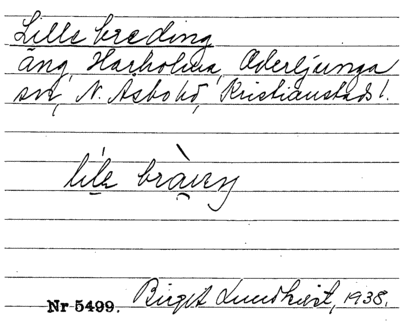 Lille breding
äng, Harholma, Oderljunga
sn, N. Åsbo hd, Kristianstads l.
Nr 5499. Birgit Lundkvist, 1938.